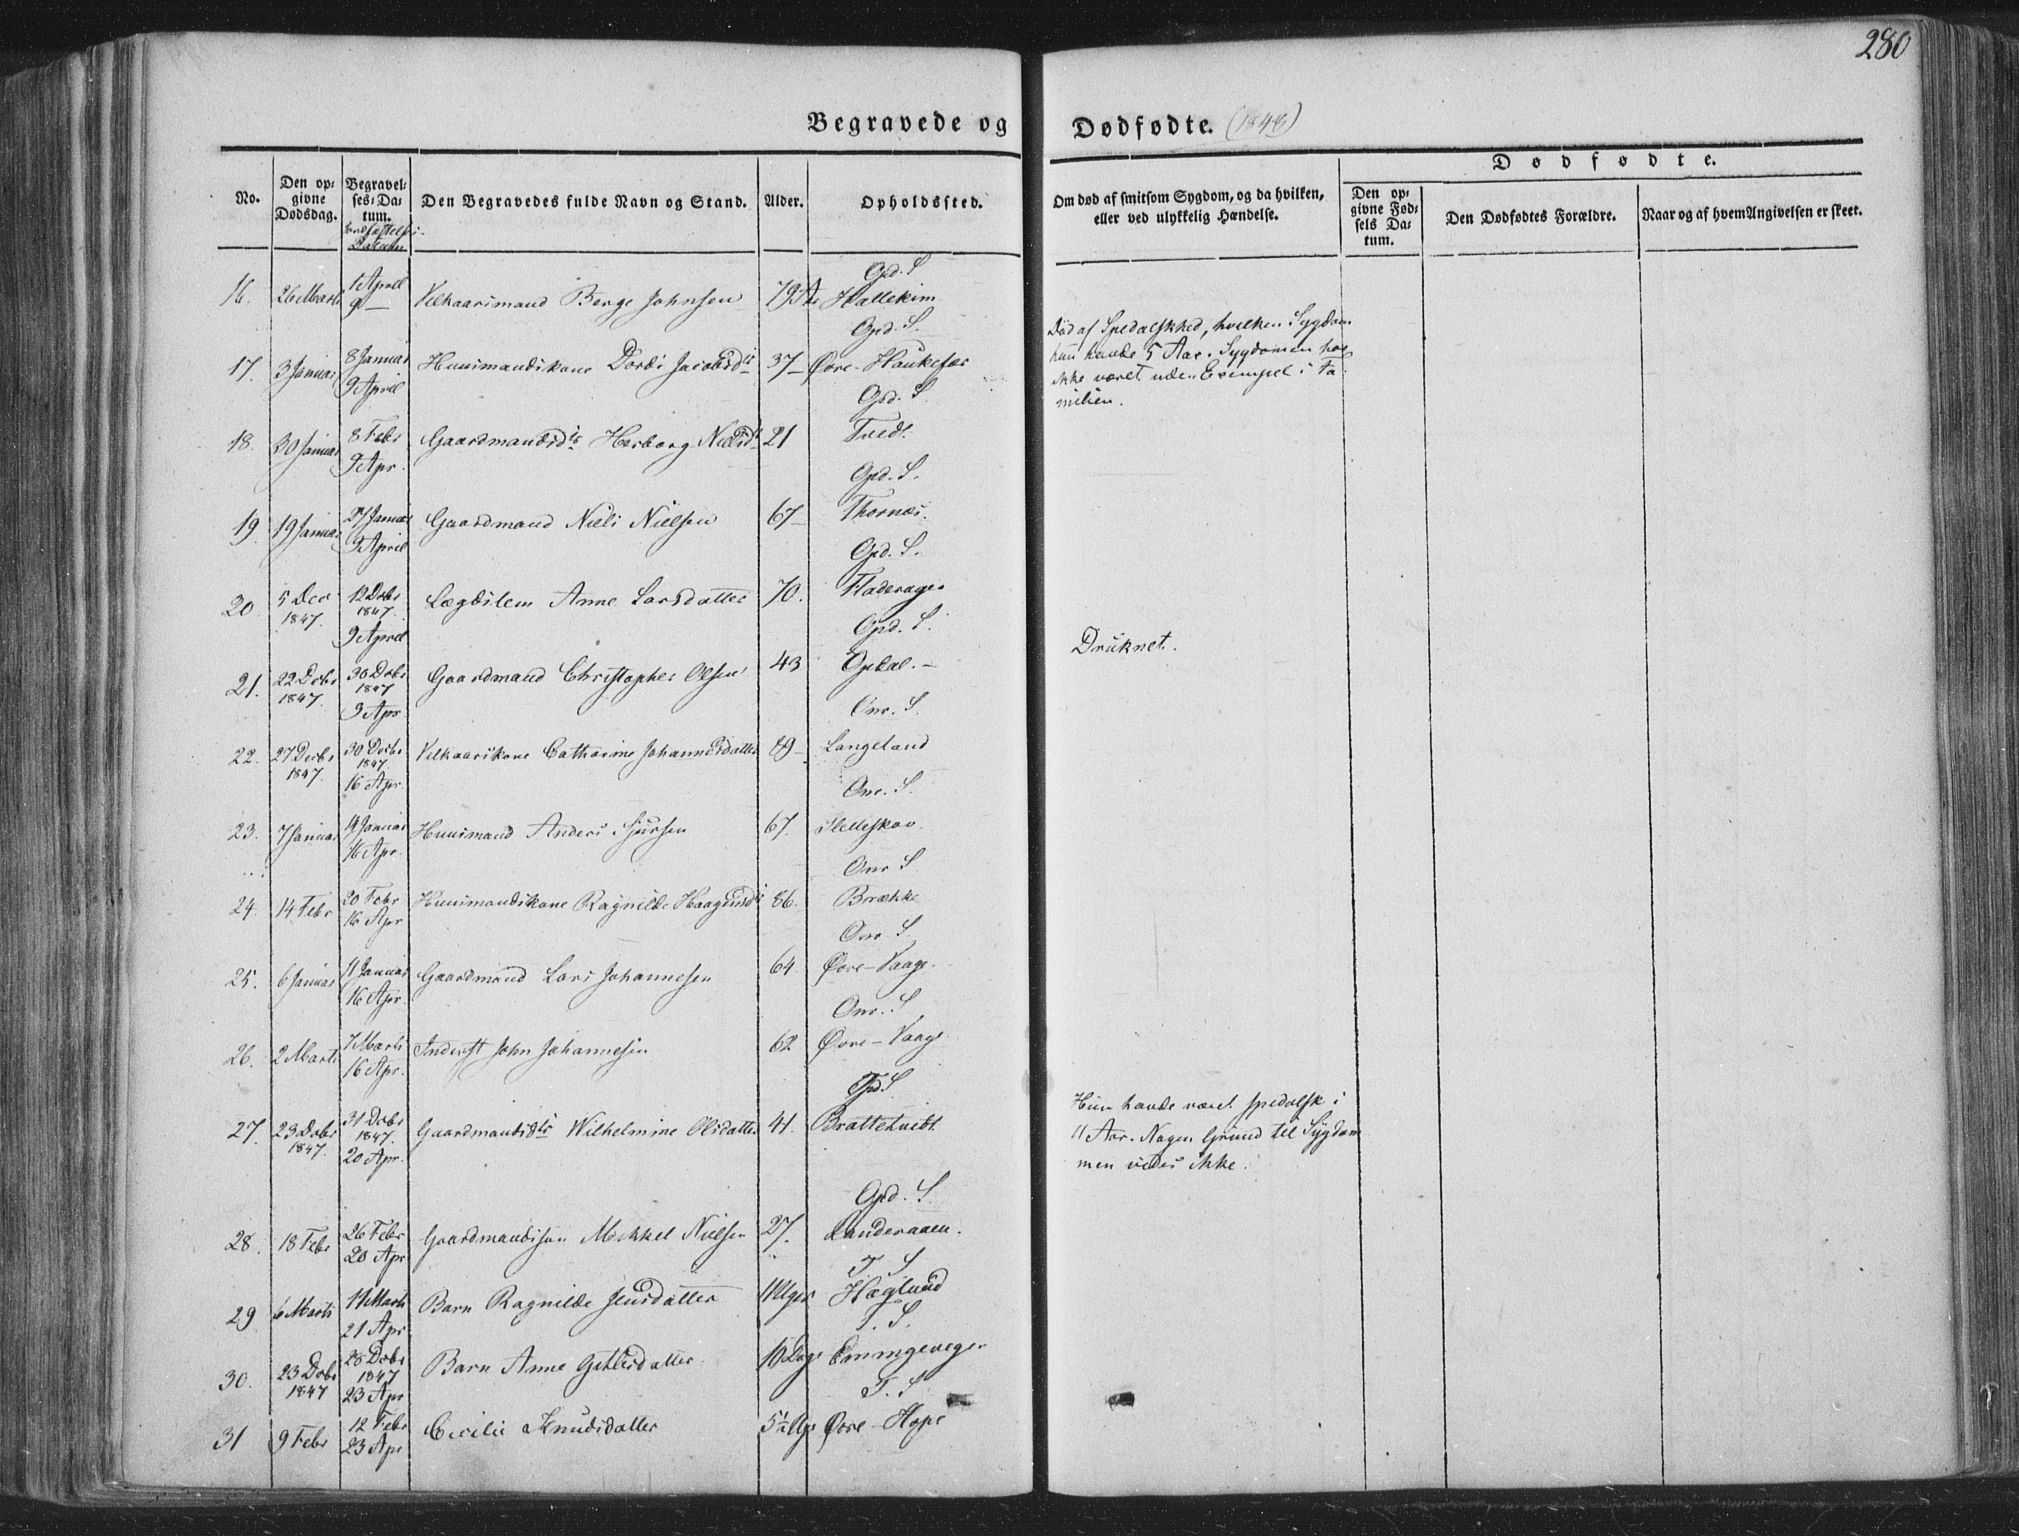 280
Begravede og Dødfødte. (1848)
No.
Den opgivne Dødsdag.
Begravelses-Datum.
Den Begravedes fulde Navn og Stand.
Alder.
Opholdssted.
Om død af smitsom Sygdom, og da hvilken, eller ved ulykkelig Hændelse.
Dødfødte.
Den opgivne Fødsels Datum.
Den Dødfødtes Forældre.
Naar og af hvem Angivelsen er skeet.
Gpd. S
16. 26 Marts 1 April 9 — Vilkaarsmand Berge Johnsen 79 Hallekim
Gpd. S.
17. 3 Januar 8 Januar 9 April Huusmandskone Dordi Jacobsdtr 37 — Øvre-Haukefær
Død af Spedalskhed, hvilken Sygdom
hun havde 5 Aar. Sygdommen har
ikke været uden Exempel i Fa-
milien.
Gpd. S.
18. 30 Januar 8 Febr 9 Apr. Gaardmandsdtr Herborg Nielsdtr 21 Tvedt
Gpd. S.
19. 19 Januar 27 Januar 9 April Gaardmand Niels Nielsen 67 — Thornæs.
Gpd. S.
20. 5 Dec 1847. 12 Decbr 1847. 9 April Lægdslem Anne Larsdatter 70. Fladerager
Gpd. S.
21. 22 Decbr 1847. 30 Decbr 1847 9 Apr Gaardmand Christopher Olsen 43 Opdal. —
Druknet.
Onr. S.
22. 27 Decbr 1847. 30 Decbr 1847. 16 Apr. Vilkaarskone Catharine Johannesdatter 89 — Langeland
Onr. S.
23. 7 Januar 14 Januar 16 Apr. Huusmand Anders Sjursen 67. Sletteskov.
Onr S
24. 14 Febr 20 Febr 16 Apr Huusmandskone Ragnilde Haagensdtr 86. Brække
Onr. S.
25. 6 Januar 11 Januar 16 Apr. Gaardmand Lars Johannesen 64 Øvre-Vaage.
Onr. S.
26. 2 Marts 7 Marts 16 Apr. Inderst John Johannesen 62 Øvre-Vaage
Gpd. S
27. 23 Decbr 1847. 31 Decbr 1847. 20 Apr. Gaardmandsdtr Wilhelmine Olsdatter 41. Brattetveidt
Hun havde været spedalsk i
11 Aar. Nogen Grund til Sygdom
men vides ikke.
Gpd. S.
28. 18 Febr 26 Febr 20 Apr Gaardmandssøn Mikkel Nielsen 27. Landeraaen.
T. S
29. 6 Marts 11 Marts 21 Apr Barn Ragnilde Jensdatter 11 Uger Høglund
T. S.
30. 23 Decbr 1847 28 Decbr 1847 23 Apr Barn Anne Gitlesdatter 16 Dage
T. S
31 9 Febr 12 Febr 23 Apr Cicilie Knudsdatter 5½ Øvre-Hope